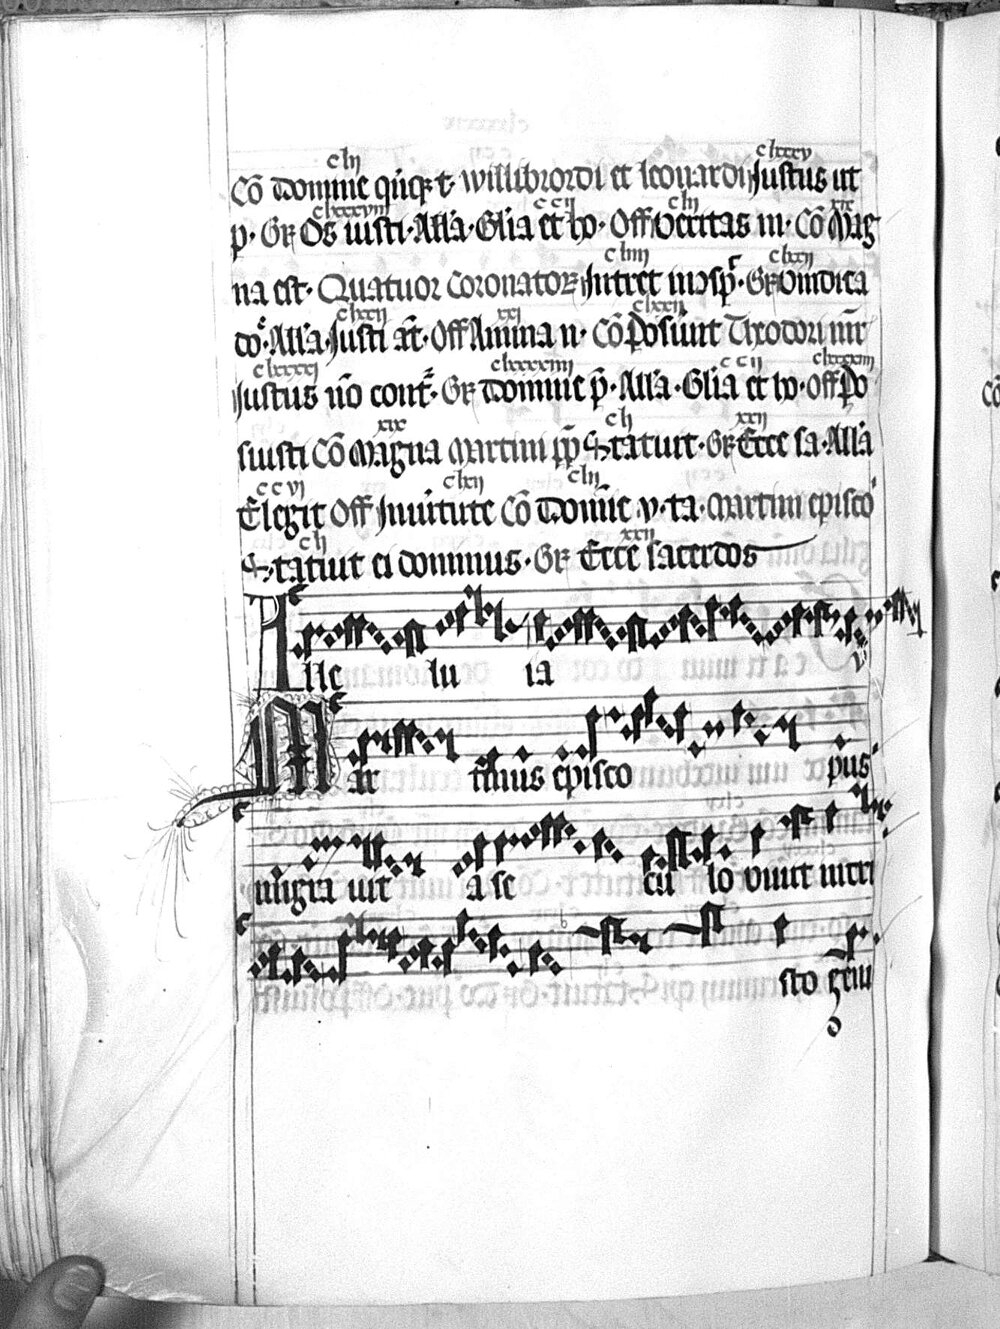 clij clxxxv
Cō Domine quīqꝫ t· willibrordi et leonardi Justus ut
clxxxviij ccij clij xix
p· Gr Os iusti·Alla·Glia et ho· Off Veritas m· Cō Mag
cliiij clxij
na est· Quatuor coronatoꝝ Intret ī ↄsp· Gr Vindica
clxxij xxj clxxij
do·Alla·Justi āt· Off Anima n· Cō Posuerūt Theodori mr̄
clxxxxj clxxxxiiij ccij clxxxxiij
Justus nō cont· Gr Domine p̄· Alla·Glia et ho·Off Po
xix clj xxij
suisti Cō Magna Martini pp Statuit·Gr Ecce sa·Alla
ccvj clxij clij
Elegit Off In uirtute Cō Domīe .v·ta·Martini episco
clj xxij
Statuit ei dominus·Gr Ecce sacerdos
Alle lu ia
Mar tinus episco pus
migra uit a se cu lo viuit in cri
sto gēm